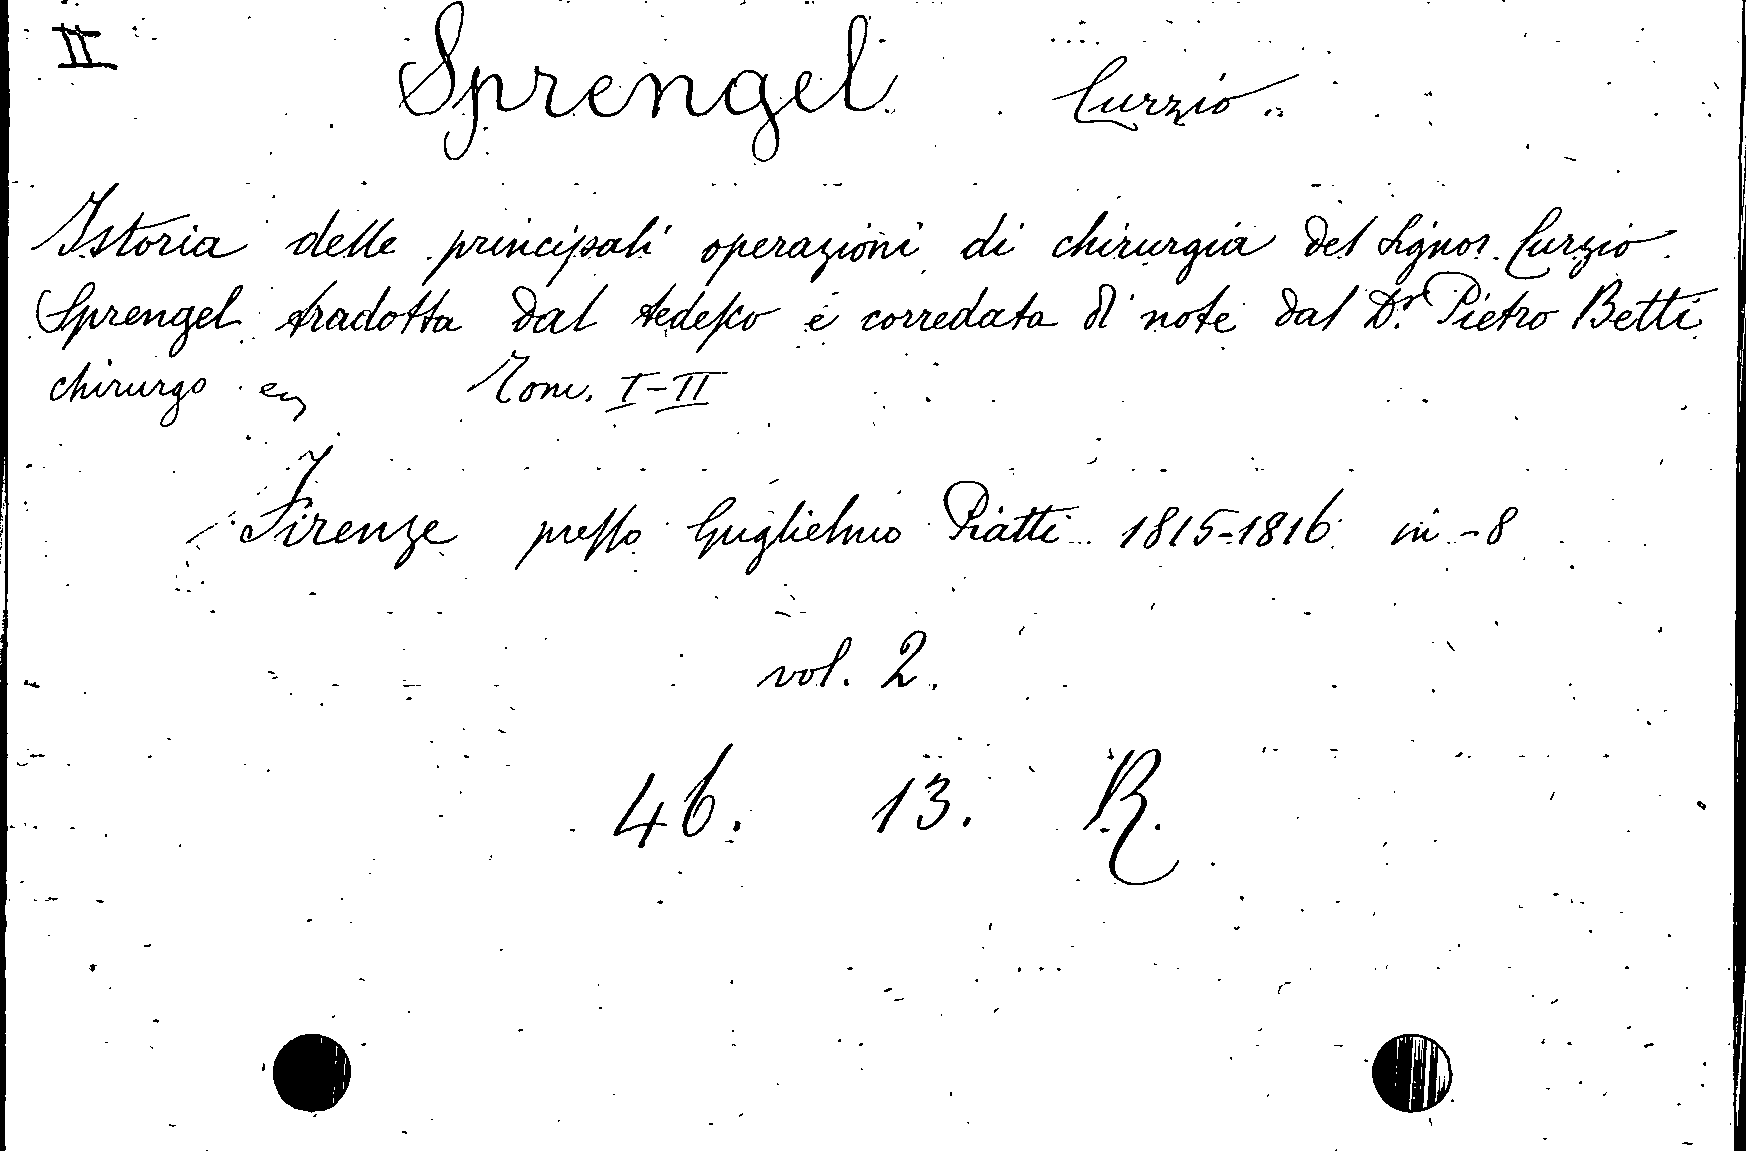 II Sprengel Curzio.
Istoria delle principali operazioni di chirurgia del Signor Curzio
Sprengel tradotta dal tedesco e corredata di note dal Dr. Pietro Betti
chirurgo Tom. I-II
Firenze presso Guglielmo Piatti 1815-1816 in -8
vol. 2.
46. 13. R.